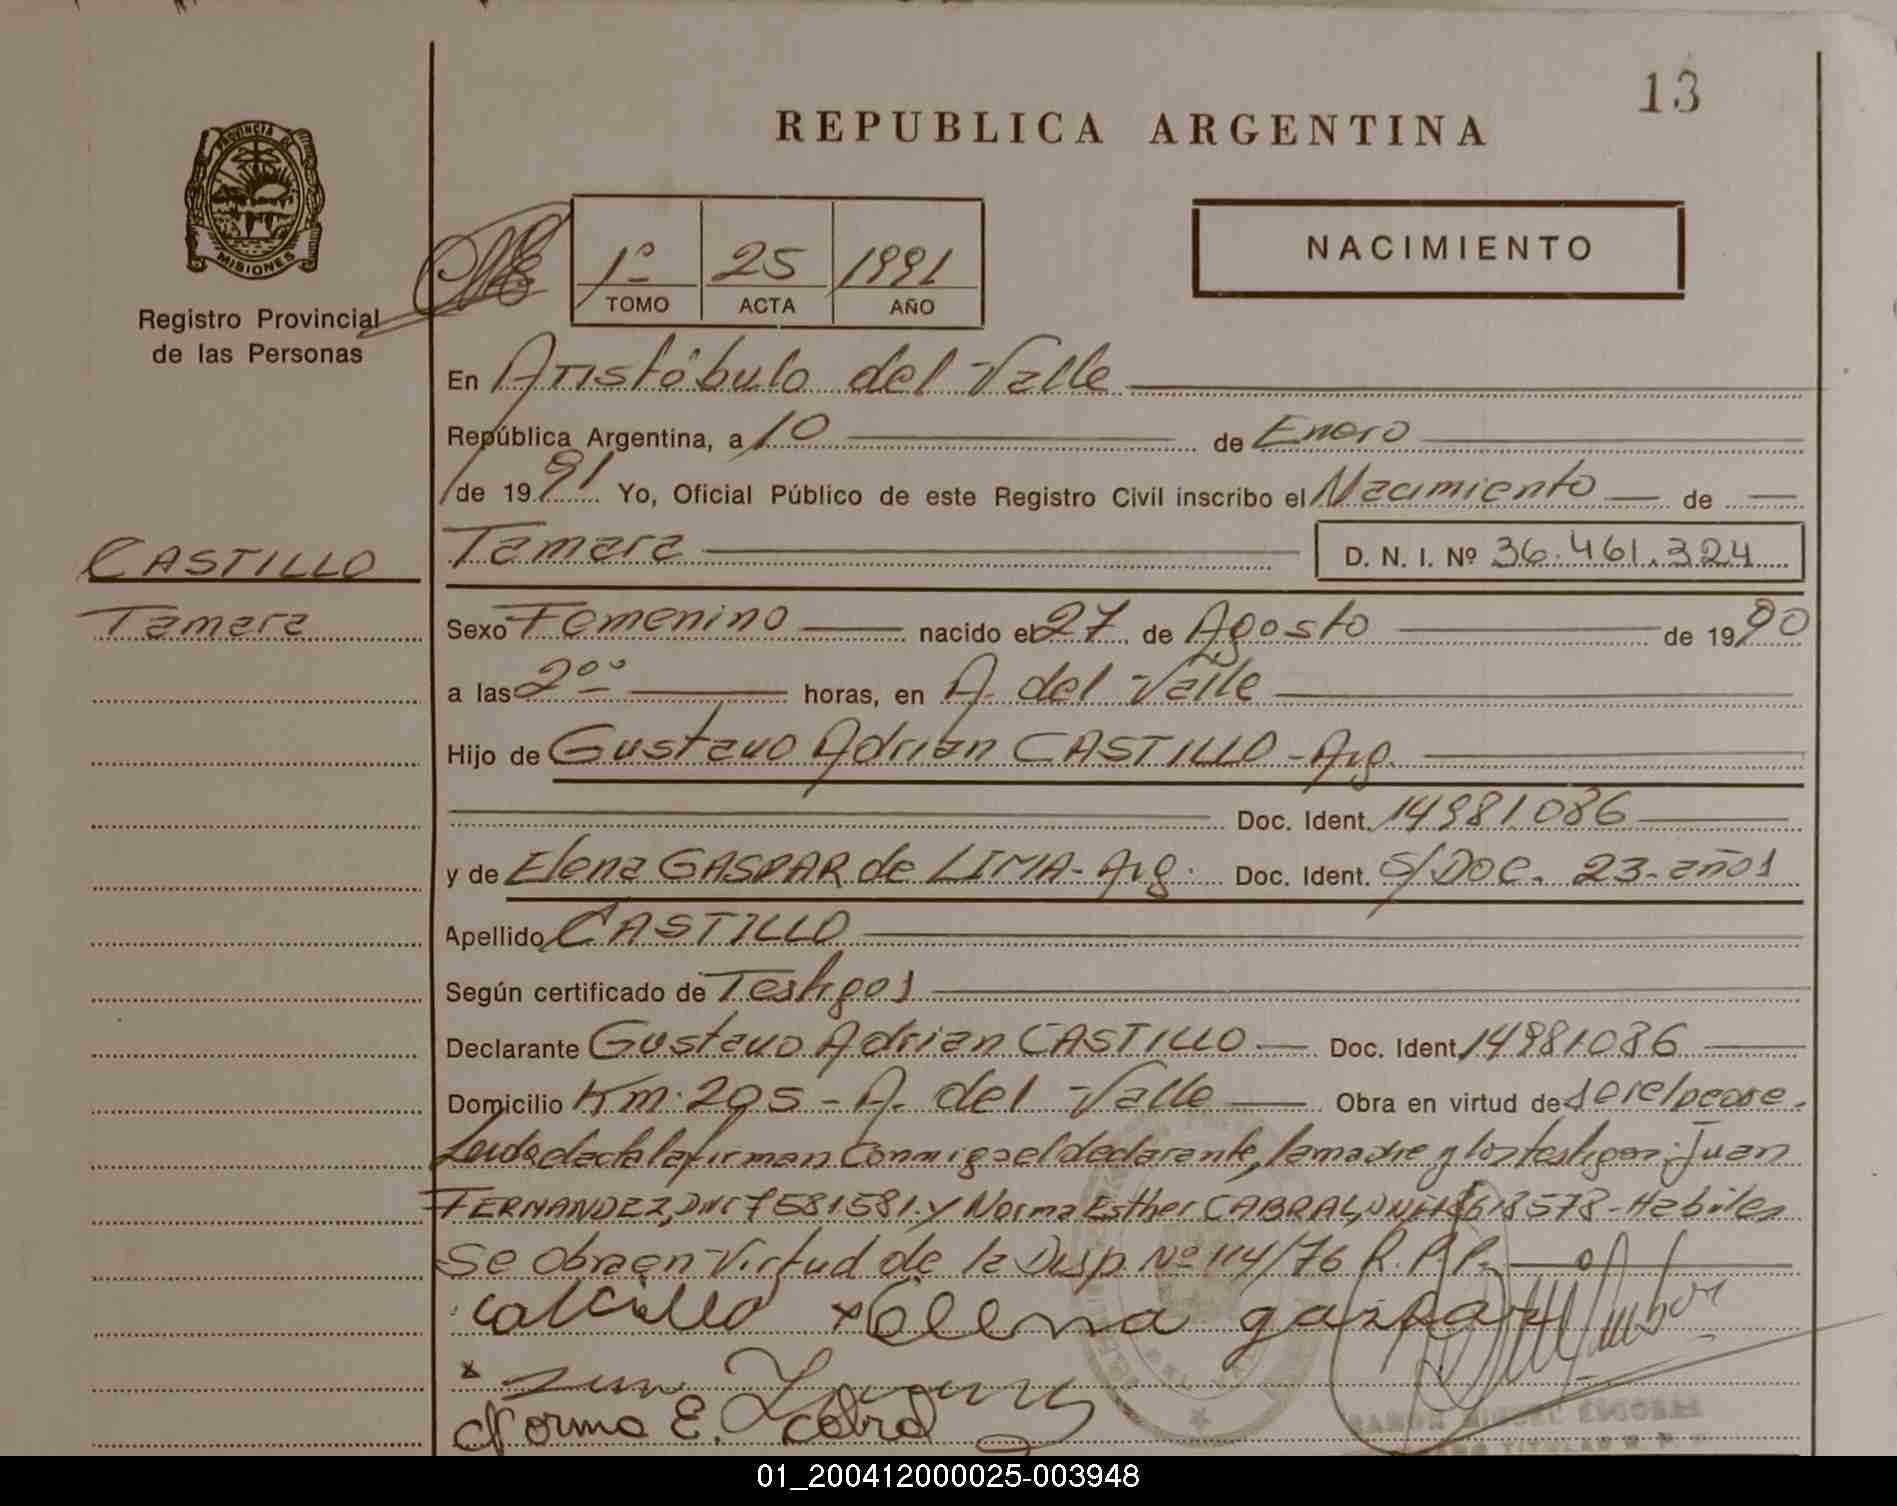 13
REPUBLICA ARGENTINA
PROVINCIA DE
MISIONES
Registro Provincial
de las Personas
1º 25 1991
TOMO ACTA AÑO
NACIMIENTO
En Aristóbulo del Valle
República Argentina, a 10 de Enero
de 1991 Yo, Oficial Público de este Registro Civil inscribo el Nacimiento de
CASTILLO
Tamara
Tamara D. N. I. Nº 36.461.324
Sexo Femenino nacido el 27 de Agosto de 1990
a las 2ºº horas, en A. del Valle
Hijo de Gustavo Adrian CASTILLO - Arg.
Doc. Ident. 14981086
y de Elena GASPAR de LIMA - Arg. Doc. Ident. S/DOC. 23-años
Apellido CASTILLO
Según certificado de Testigos
Declarante Gustavo Adrian CASTILLO Doc. Ident. 14981086
Domicilio Km. 205 - A. del Valle Obra en virtud de ser el padre.
Leida el acta la firman conmigo el declarante, la madre y los testigos: Juan
FERNANDEZ, DNI 7581581 y Norma Esther CABRAL, DNI 18618578 - Habiles
Se obra en Virtud de la Disp. Nº 114/76 R.P.P.
castillo x Elena gaspar
x
Norma E. Cabral
RAMON MIGUEL ESCOBAR
TITULAR R. P.
01_200412000025-003948